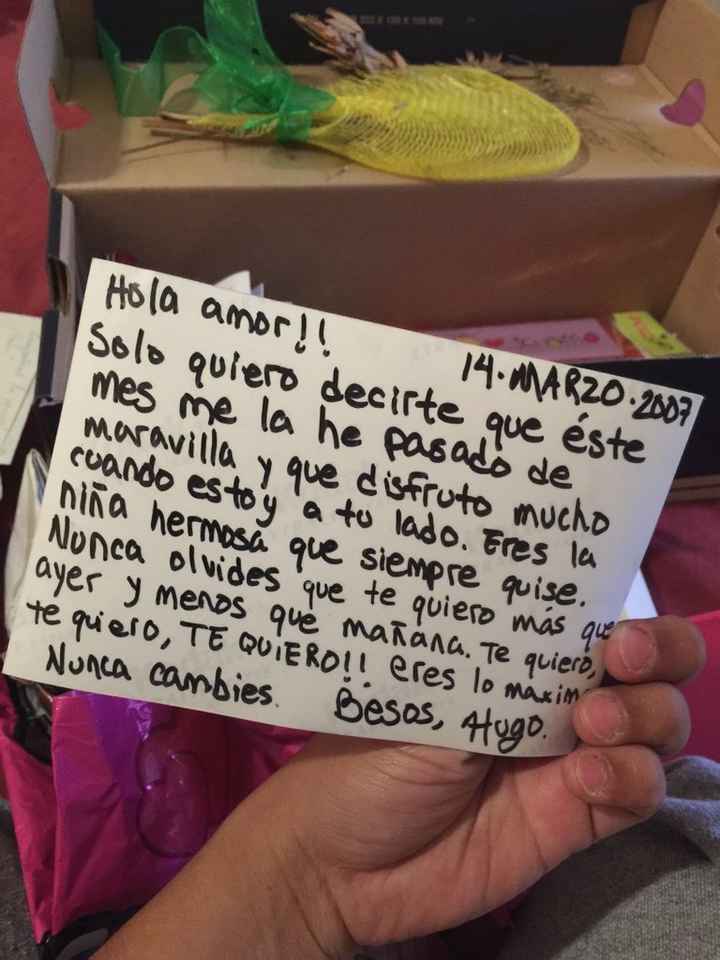 Hola amor!!
14.MARZO.2007
Solo quiero decirte que éste
mes me la he pasado de
maravilla y que disfruto mucho
cuando estoy a tu lado. Eres la
niña hermosa que siempre quise.
Nunca olvides que te quiero más que
ayer y menos que mañana. Te quiero,
te quiero, TE QUIERO!! eres lo maxim
Nunca cambies. Besos, Hugo.